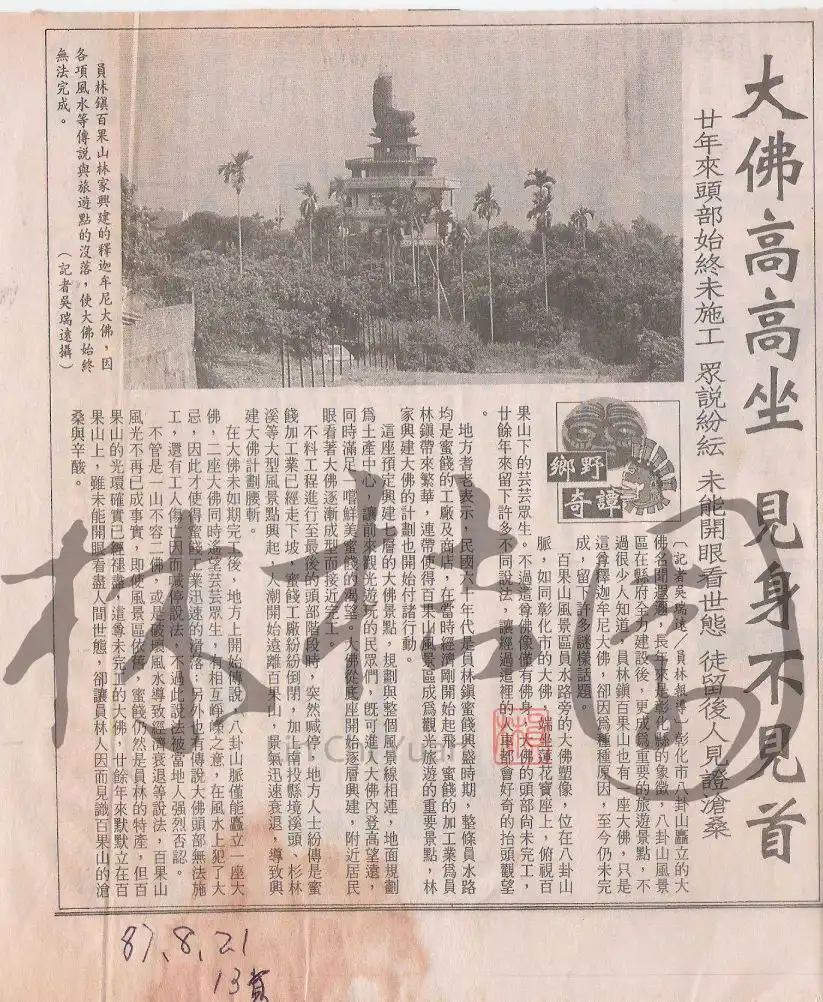 大佛高高坐 見身不見首
廿年來頭部始終未施工 眾說紛紜 未能開眼看世態 徒留後人見證滄桑
員林鎮百果山林家興建的釋迦牟尼大佛，因
各項風水等傳說與旅遊點的沒落，使大佛始終
無法完成。
（記者吳瑞遠攝）
鄉野
奇譚
〔記者吳瑞遠／員林報導〕彰化市八卦山矗立的大
佛名聞遐邇，長年來是彰化縣的象徵，八卦山風景
區在縣府全力建設後，更成為重要的旅遊景點，不
過很少人知道，員林鎮百果山也有一座大佛，只是
這尊釋迦牟尼大佛，卻因為種種原因，至今仍未完
成，留下許多謎樣話題。
百果山風景區員水路旁的大佛塑像，位在八卦山
脈，如同彰化市的大佛，端坐蓮花寶座上，俯視百
果山下的芸芸眾生。不過這尊佛像僅有佛身，大佛的頭部尚未完工，
廿餘年來留下許多不同說法，讓經過這裡的人車都會好奇的抬頭觀望
。
地方耆老表示，民國六十年代是員林鎮蜜餞興盛時期，整條員水路
均是蜜餞的工廠及商店，在當時經濟剛開始起飛，蜜餞的加工業為員
林鎮帶來繁華，連帶使得百果山風景區成為觀光旅遊的重要景點，林
家興建大佛的計劃也開始付諸行動。
這座預定興建七層的大佛景點，規劃與整個風景線相連，地面規劃
為土產中心，讓前來觀光遊玩的民眾們，既可進入大佛內登高望遠，
同時滿足一嚐鮮美蜜餞的渴望。大佛從底座開始逐層興建，附近居民
眼看著大佛逐漸成型而接近完工。
不料工程進行至最後的頭部階段時，突然喊停，地方人士紛傳是蜜
餞加工業已經走下坡，蜜餞工廠紛紛倒閉，加上南投縣境溪頭、杉林
溪等大型風景點興起，人潮開始遠離百果山，景氣迅速衰退，導致興
建大佛計劃腰斬。
在大佛未如期完工後，地方上開始傳說，八卦山脈僅能矗立一座大
佛，二座大佛同時遙望芸芸眾生，有相互崢嶸之意，在風水上犯了大
忌，因此才使得蜜餞工業迅速的滑落；另外也有傳說大佛頭部無法施
工，還有工人傷亡因而喊停說法，不過此說法被當地人強烈否認。
不管是一山不容二佛，或是破壞風水導致經濟衰退等說法，百果山
風光不再已成事實，即使風景區依舊，蜜餞仍然是員林的特產，但百
果山的光環確實已經褪盡，這尊未完工的大佛，廿餘年來默默立在百
果山上，雖未能開眼看盡人間世態，卻讓員林人因而見識百果山的滄
桑與辛酸。
87.8.21
13頁